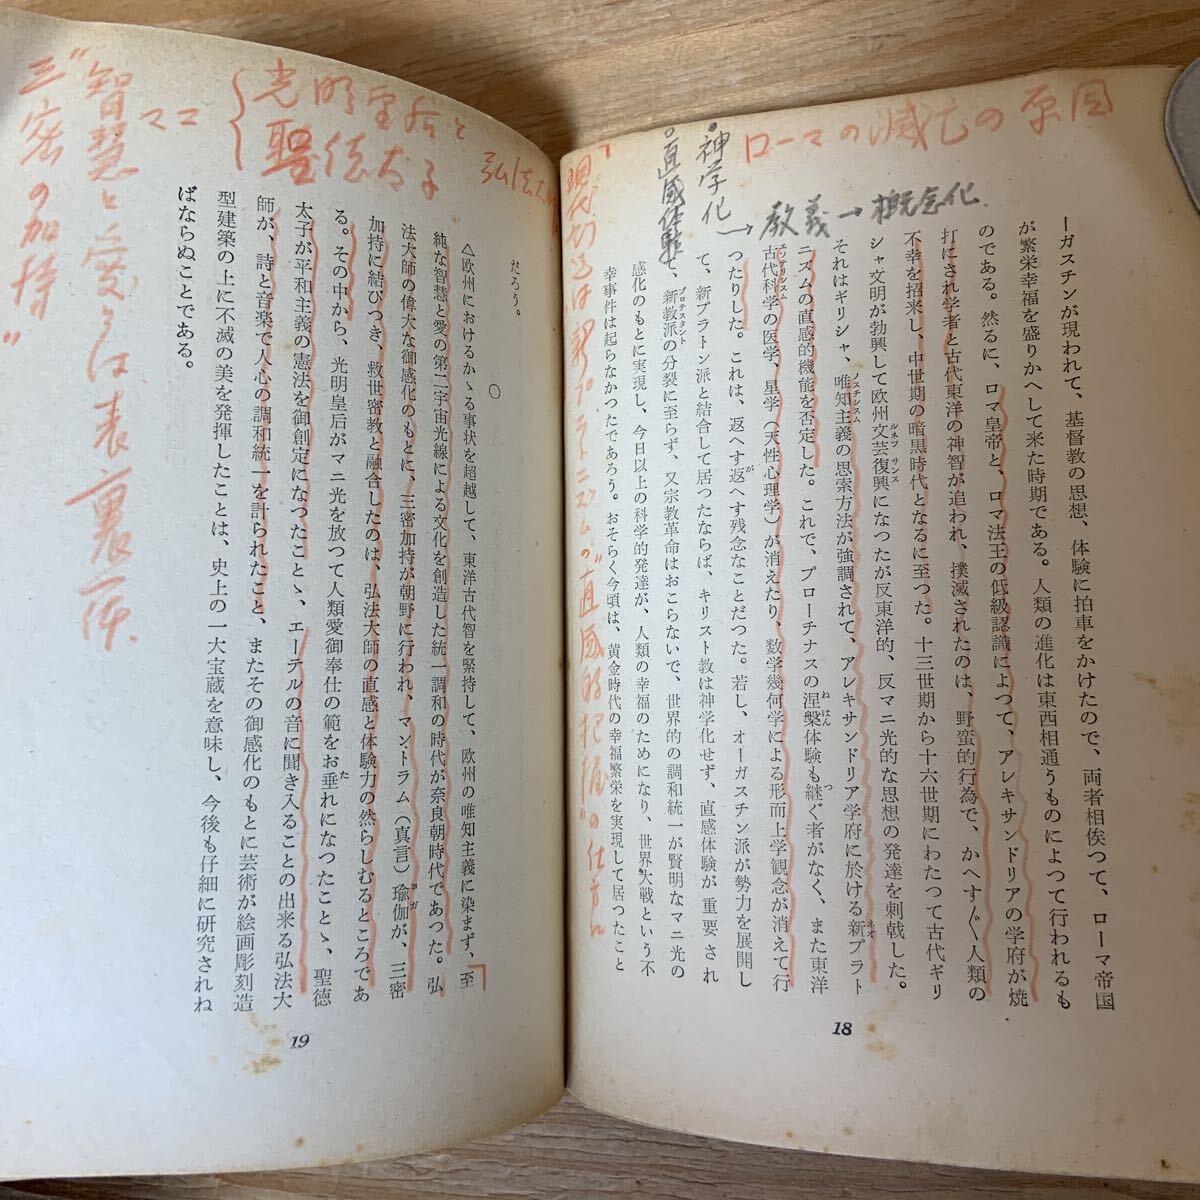 ローマの滅亡の原因
神学化
→教義→概念化
直感体験
ーガスチンが現われて、基督教の思想、体験に拍車をかけたので、両者相俟つて、ローマ帝国
が繁栄幸福を盛りかへして来た時期である。人類の進化は東西相通うものによつて行われるも
のである。然るに、ロマ皇帝と、ロマ法王の低級認識によつて、アレキサンドリアの学府が焼
打にされ学者と古代東洋の神智が追われ、撲滅されたのは、野蛮的行為で、かへす〴〵人類の
不幸を招来し、中世期の暗黒時代となるに至つた。十三世期から十六世期にわたつて古代ギリ
シャ文明が勃興して欧州文芸復興になつたが反東洋的、反マニ光的な思想の発達を刺戟した。
ルネツサンス
それはギリシャ、唯知主義の思索方法が強調されて、アレキサンドリア学府に於ける新プラト
ノスチシスム
ネオ
ニズムの直感的機能を否定した。これで、プローチナスの涅槃体験も継ぐ者がなく、また東洋
ねはん
つ
古代科学の医学、星学（天性心理学）が消えたり、数学幾何学による形而上学観念が消えて行
つたりした。これは、返へす返へす残念なことだつた。若し、オーガスチン派が勢力を展開し
が
て、新プラトン派と結合して居つたならば、キリスト教は神学化せず、直感体験が重要され
て、新教派の分裂に至らず、又宗教革命はおこらないで、世界的の調和統一が賢明なマニ光の
プロテスタント
感化のもとに実現し、今日以上の科学的発達が、人類の幸福のためになり、世界大戦という不
幸事件は起らなかつたであろう。おそらく今頃は、黄金時代の幸福繁栄を実現して居つたこと
18
現代の
は新プラトニズムの"直感的把握"の仕方
光明皇后と
聖徳太子
弘法大師
ママ
"智慧と愛とは表裏一体
三密の加持"
だろう。
〇
△欧州におけるかゝる事状を超越して、東洋古代智を緊持して、欧州の唯知主義に染まず、至
純な智慧と愛の第二宇宙光線による文化を創造した統一調和の時代が奈良朝時代であつた。弘
法大師の偉大な御感化のもとに、三密加持が朝野に行われ、マントラム（真言）瑜伽が、三密
ヨガ
加持に結びつき、救世密教と融合したのは、弘法大師の直感と体験力の然らしむるところであ
る。その中から、光明皇后がマニ光を放つて人類愛御奉仕の範をお垂れになつたことゝ、聖徳
た
太子が平和主義の憲法を御創定になつたことゝ、エーテルの音に聞き入ることの出来る弘法大
師が、詩と音楽で人心の調和統一を計られたこと、またその御感化のもとに芸術が絵画彫刻造
型建築の上に不滅の美を発揮したことは、史上の一大宝蔵を意味し、今後も仔細に研究されね
ばならぬことである。
19